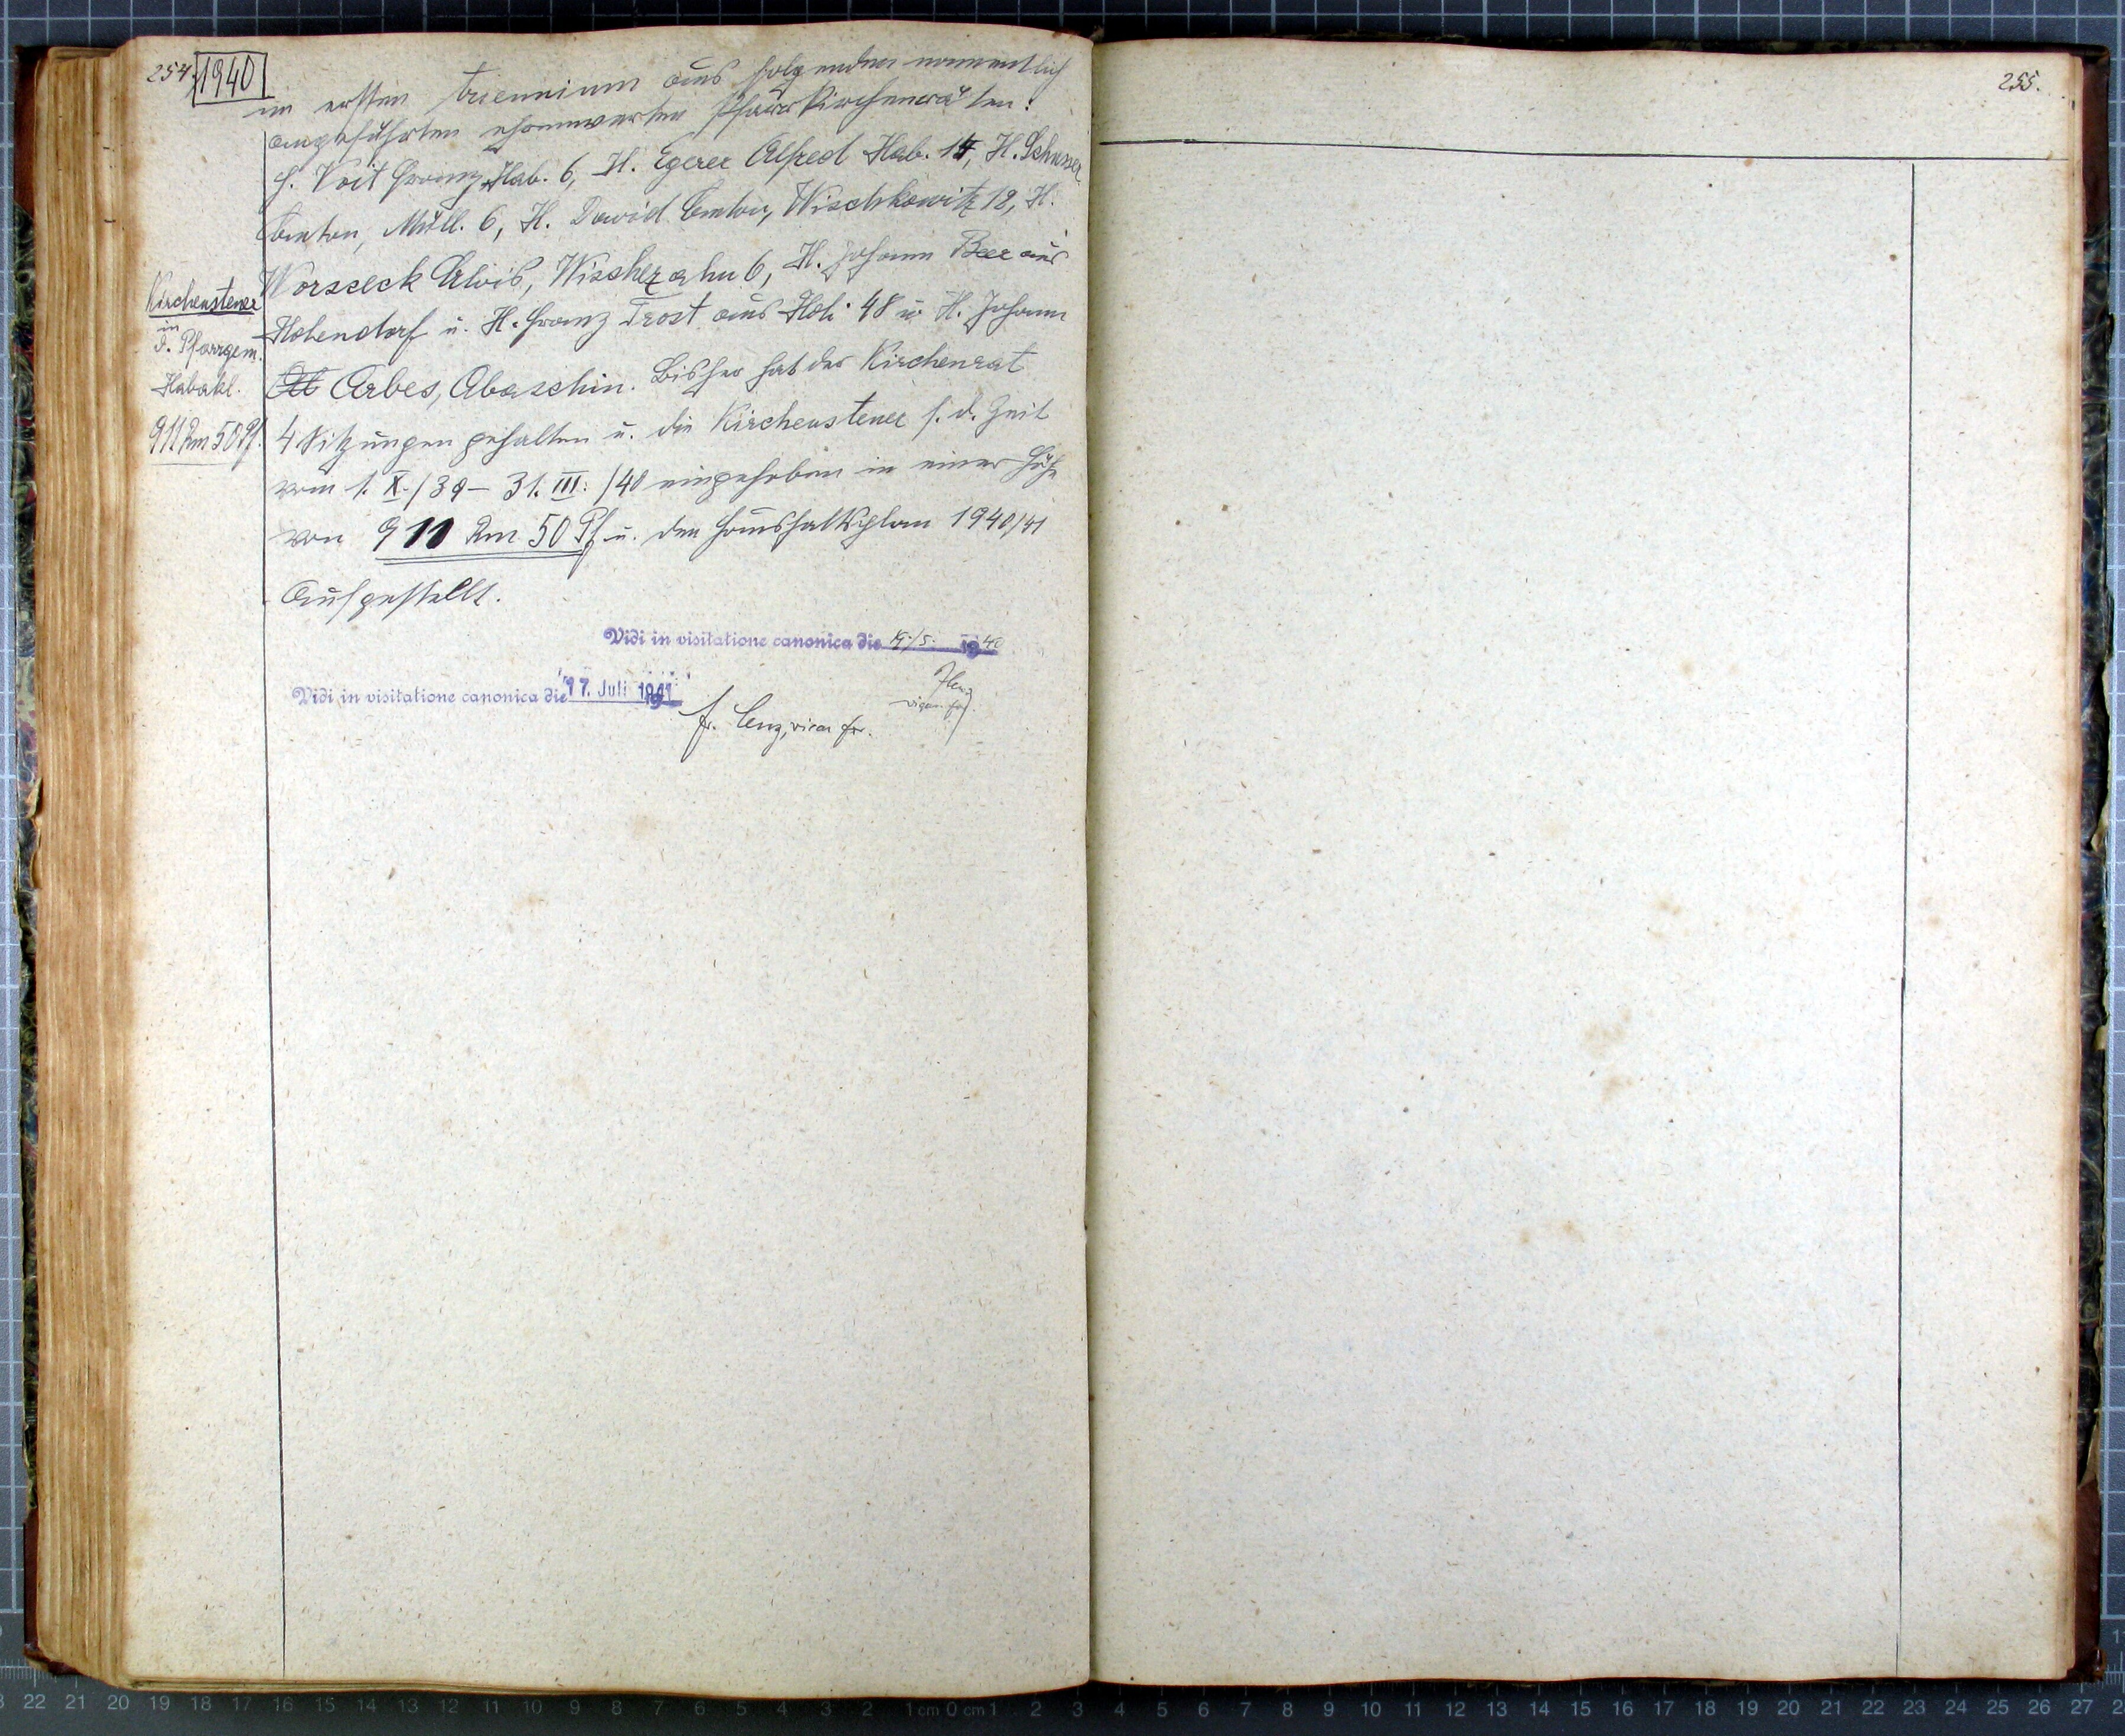 254. 1940
im ersten triennium aus folgenden namentlich
angeführten ehrenwerten Pfarrkirchenräten:
H. Voit Franz Hab. 6, H. Egerer Alfred Hab. 14, H. Schusser
Anton, Müll. 6, H. David Anton, Wischkowitz 12, H.
Worseck Alois, Wischezahn 6, H. Johann Beer aus
Hohendorf u. H. Franz Trost aus Holi 48 u. H. Johann
Arbes, Abaschin. Bisher hat der Kirchenrat
4 Sitzungen gehalten u. die Kirchensteuer f. d. Zeit
vom 1. X./39 – 31. III. /40 eingehoben in einer Höhe
von 911 Rm 50 Pf u. den Haushaltsplan 1940/41
aufgestellt.
Kirchensteuer
in
d. Pfarrgem.
Habakl.
911 Rm 50 Pf.
Vidi in visitatione canonica die 19./5. 1940
Vidi in visitatione canonica die 17. Juli 1941
fr. Lenz, vicar for.
255.